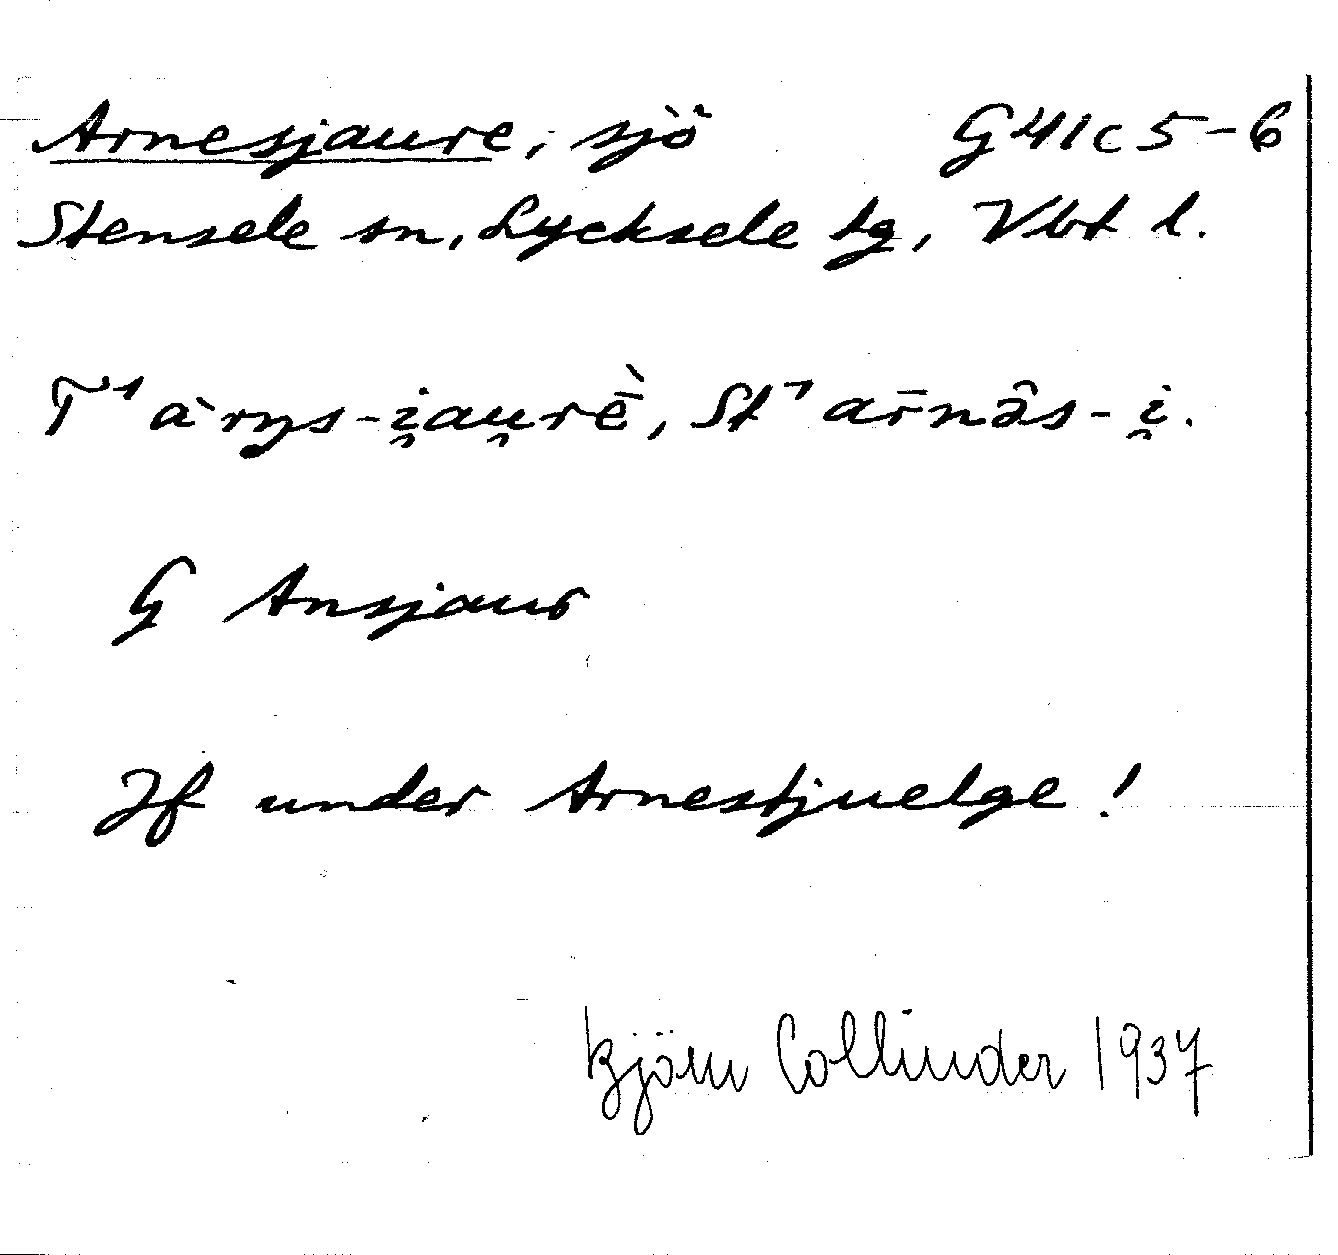 Arnesjaure, sjö G41c5-6
Stensele sn, Lycksele tg, Vbt l.
T⁴ àrŋs-i̯au̯rḕ, St⁷ ar̄nâs-i̯.
G Ansjaur
Jf under Arnestjuelge!
Björn Collinder 1937